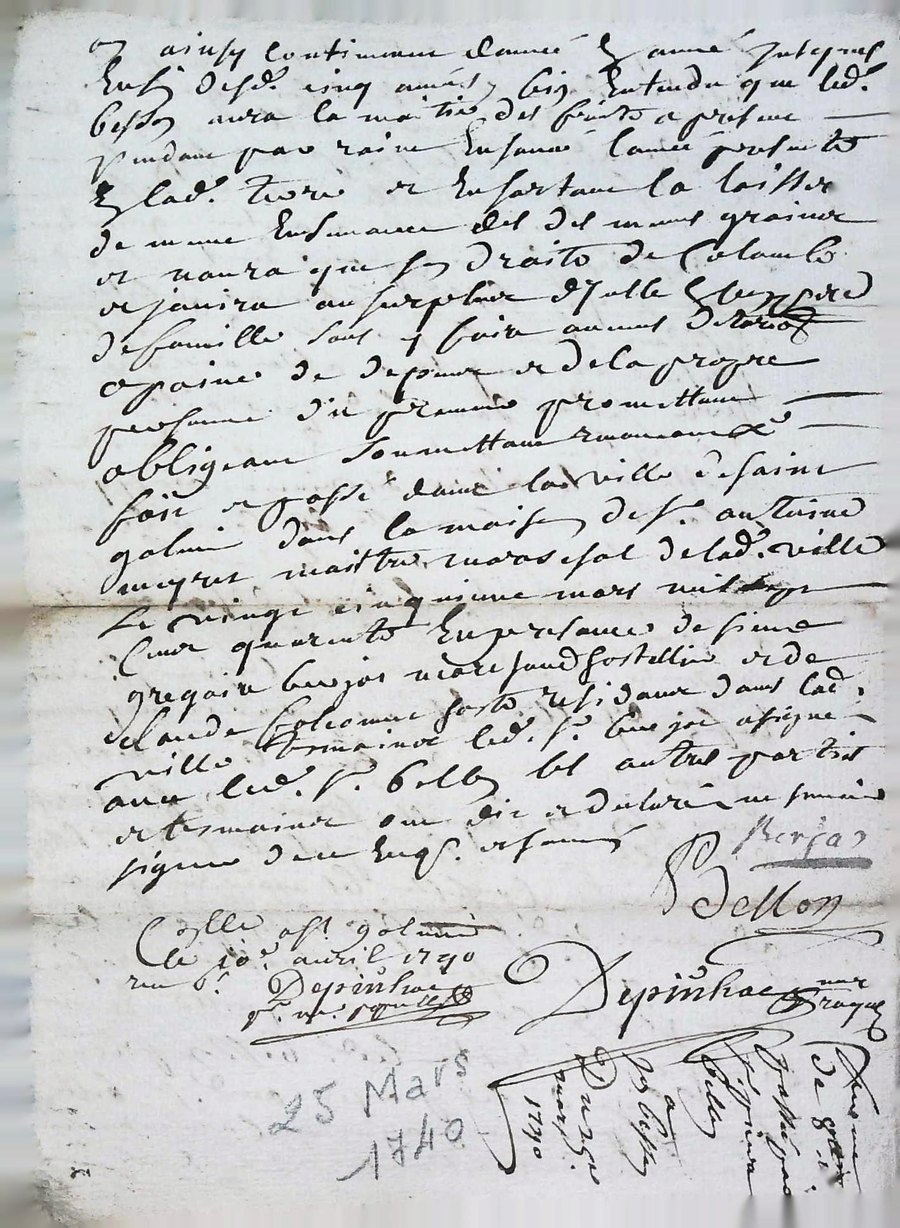 et ainsy continuer d'année en année jusques
en fin desd. cinq années, bien entendu que led.
besson aura la moitié des fruits a present
pendant par racine ensemé l'année presente
en lad. terre et en sortant la laisser
de meme ensemancé des des memes grains
et n'aura que ses droits de Colombe
et jouira au surplus d'yelle en bon pere
de famille sans y faire aucunes
a paine de depens et de la propre
personne dit prometant
obligeant soumettant renonceant &
fait et passé dans la ville de saint
galmier dans la maison de sr. antoine
meyret maitre marechal de lad. ville
le vingt cinquieme mars mil sept
cent quarente en presence de sieur
gregoire berjas marchand hostellier et de
claude hoste residant dans lad.
ville temoins led. sr. berjas a signé
avec led. sr. bellon les autres parties
et temoins ont dit et declaré ne scavoir
signer de ce enqs. et sommés
Berjas
Bellon
Conllé a st. galmier
le 10e. avril 1740
reçu 6 s. Depinhac
Depinhac nre royal
25 Mars
1740
ferme
de
passé par
le sieur
bellon
a
Du 25e
mars
1740